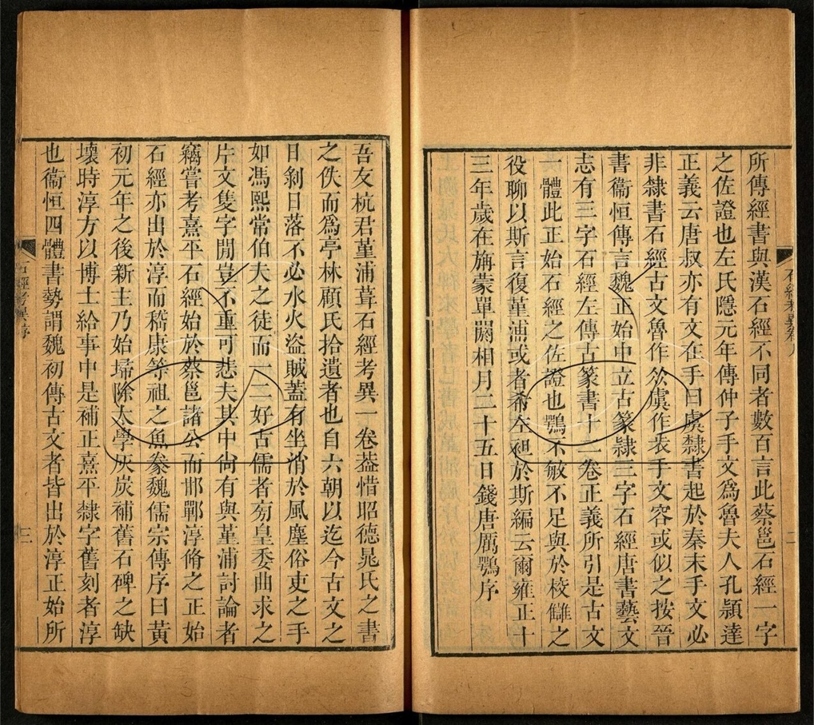 所傳經書與漢石經不同者數百言此蔡邕石經一字
之佐證也左氏隱元年傳仲子手文爲魯夫人孔頴達
正義云唐叔亦有文在手曰虞隸書起於秦末手文必
非隸書石經古文魯作虞作手文容或似之按晉
書衞恒傳言魏正始中立古篆隸三字石經唐書藝文
志有三字石經左傳古篆書十二卷正義所引是古文
一體此正始石經之佐證也鶚不敏不足與於校讎之
役聊以斯言復堇浦或者希於斯編云爾雍正十
三年歲在旃蒙單閼相月二十五日錢唐厲鶚序
吾友杭君堇浦葺石經考異一卷葢惜昭德晁氏之書
之佚而爲亭林顧氏拾遺者也自六朝以迄今古文之
日剝日落不必水火盜賊蓋有坐消於風塵俗吏之手
如馮熙常伯夫之徒而一二好古儒者匆皇委曲求之
片文隻字閒豈不重可悲夫其中尙有與堇浦討論者
竊嘗考熹平石經始於蔡邕諸公而邯鄲淳脩之正始
石經亦出於淳而嵇康等祖之魚豢魏儒宗傳序曰黃
初元年之後新主乃始埽除太學灰炭補舊石碑之缺
壞時淳方以博士給事中是補正熹平隸字舊刻者淳
也衞恒四體書勢謂魏初傳古文者皆出於淳正始所
石經考異序
二